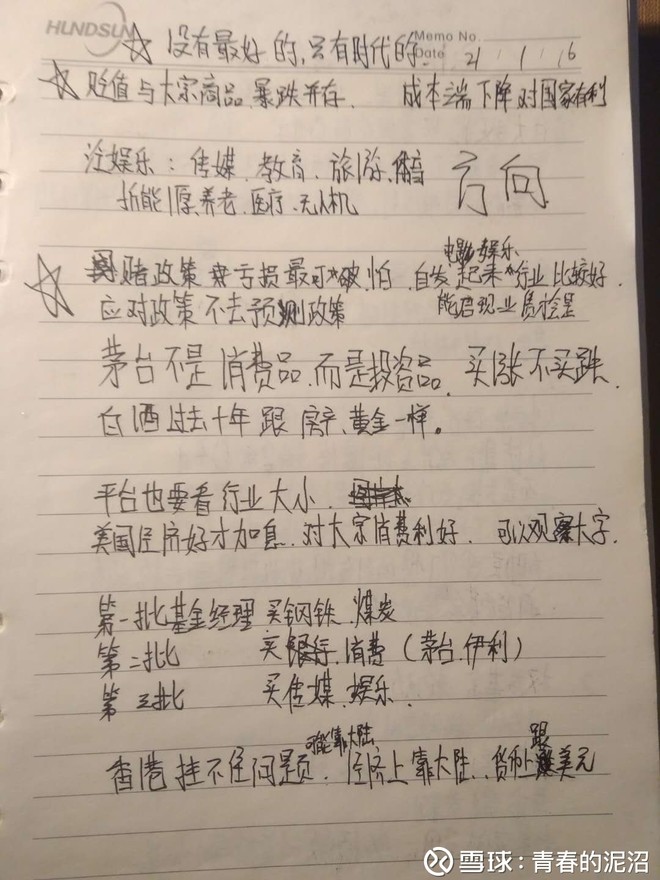 HUNDSUN
Memo No.
☆ 没有最好的,只有时代的.
Date 21 / 1 / 16
☆ 贬值与大宗商品暴跌并存. 成本端下降对国家有利
泛娱乐:传媒.教育.旅游.体育
新能源.养老.医疗.无人机
方向
电影娱乐
☆ 赌政策 亏损最可怕. 自发起来行业比较好.
应对政策不去预测政策
茅台不是消费品.而是投资品. 买涨不买跌.
白酒过去十年跟房产、黄金一样。
平台也要看行业大小.
美国经济好才加息.对大宗消费利好. 可以观察大宗.
第一批基金经理买钢铁.煤炭
第二批 买银行.消费(茅台.伊利)
第三批 买传媒.娱乐.
可能靠大陆
香港挂不住问题. 经济上靠大陆..货币上跟美元
雪球:青春的泥沼